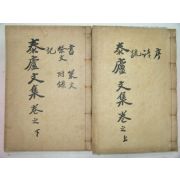 序
詩
疏
泰廬文集 卷之上
書
祭文
記
哀文
附錄
泰廬文集 卷之下